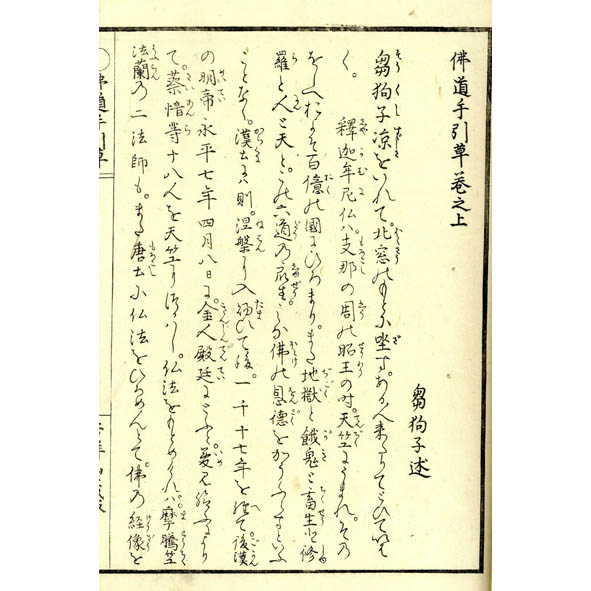 佛道手引草卷之上
芻狗子述
芻狗子涼をいれて。北窓のもとに坐す。ある人来りてとひていは
く。
釋迦牟尼仏ハ支那の周の昭王の时。天竺にうまれ。その
をしへおよそ百億の國にひろまり。また地獄と餓鬼と畜生と修
羅と人と天と。この六道の衆生。みな佛の恩德をかうふらすといふ
ことなし。漢土にハ則。涅槃に入給ひて後。一千十七年を經て。後漢
の明帝永平七年四月八日に。金人殿廷に
て。蔡愔等十八人を天竺につかハし。仏法をもとめられバ。摩騰竺
法蘭の二法師も。また唐土に仏法をひろめんとて。佛の経像を
佛道手引草